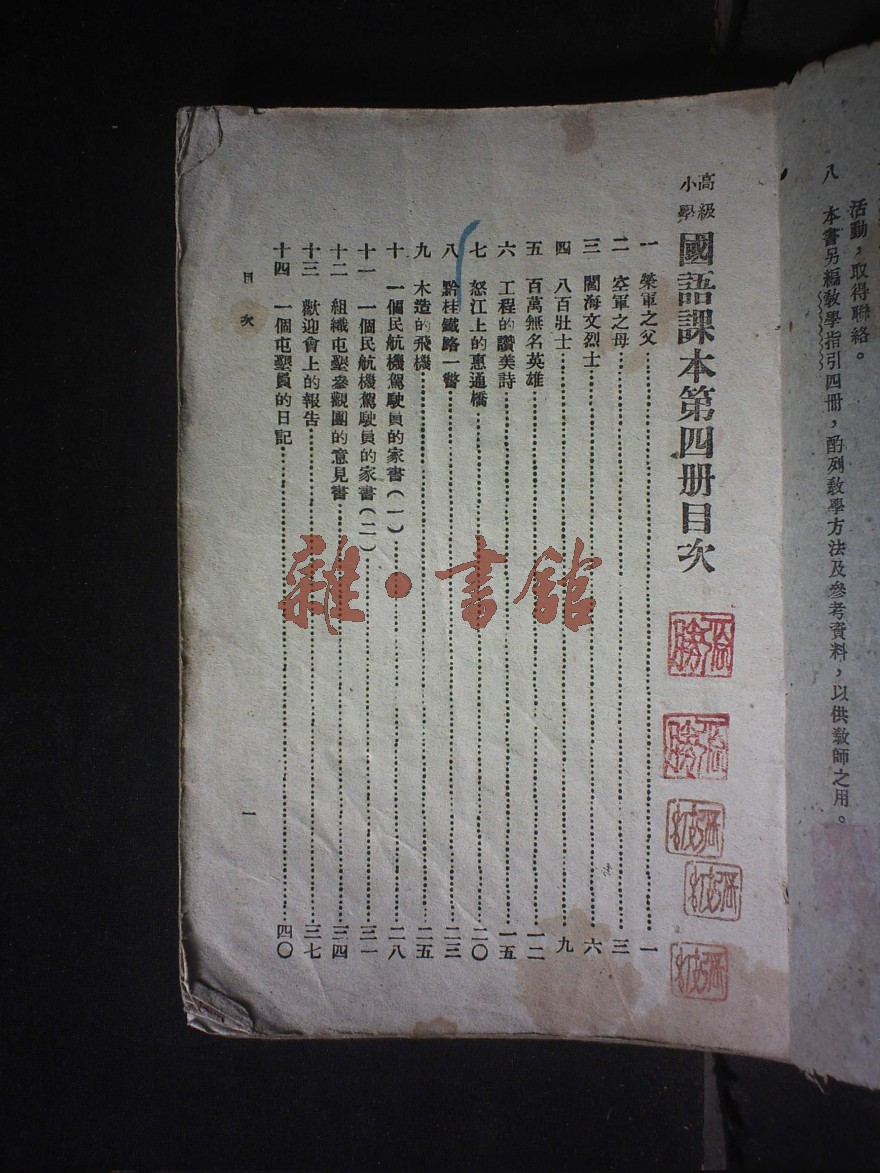 活動，取得聯絡。
八　本書另編教學指引四冊，酌列教學方法及參考資料，以供教師之用。
高級小學 國語課本第四册目次
一　榮軍之父……一
二　空軍之母……三
三　閩海文烈士……六
四　八百壯士……九
五　百萬無名英雄……一二
六　工程的讚美詩……一五
七　怒江上的惠通橋……二〇
八　黔桂鐵路一瞥……二三
九　木造的飛機……二五
十　一個民航機駕駛員的家書(一)……二八
十一　一個民航機駕駛員的家書(二)……三一
十二　組織屯墾參觀團的意見書……三四
十三　歡迎會上的報告……三七
十四　一個屯墾員的日記……四〇
目次　一
雜·書館